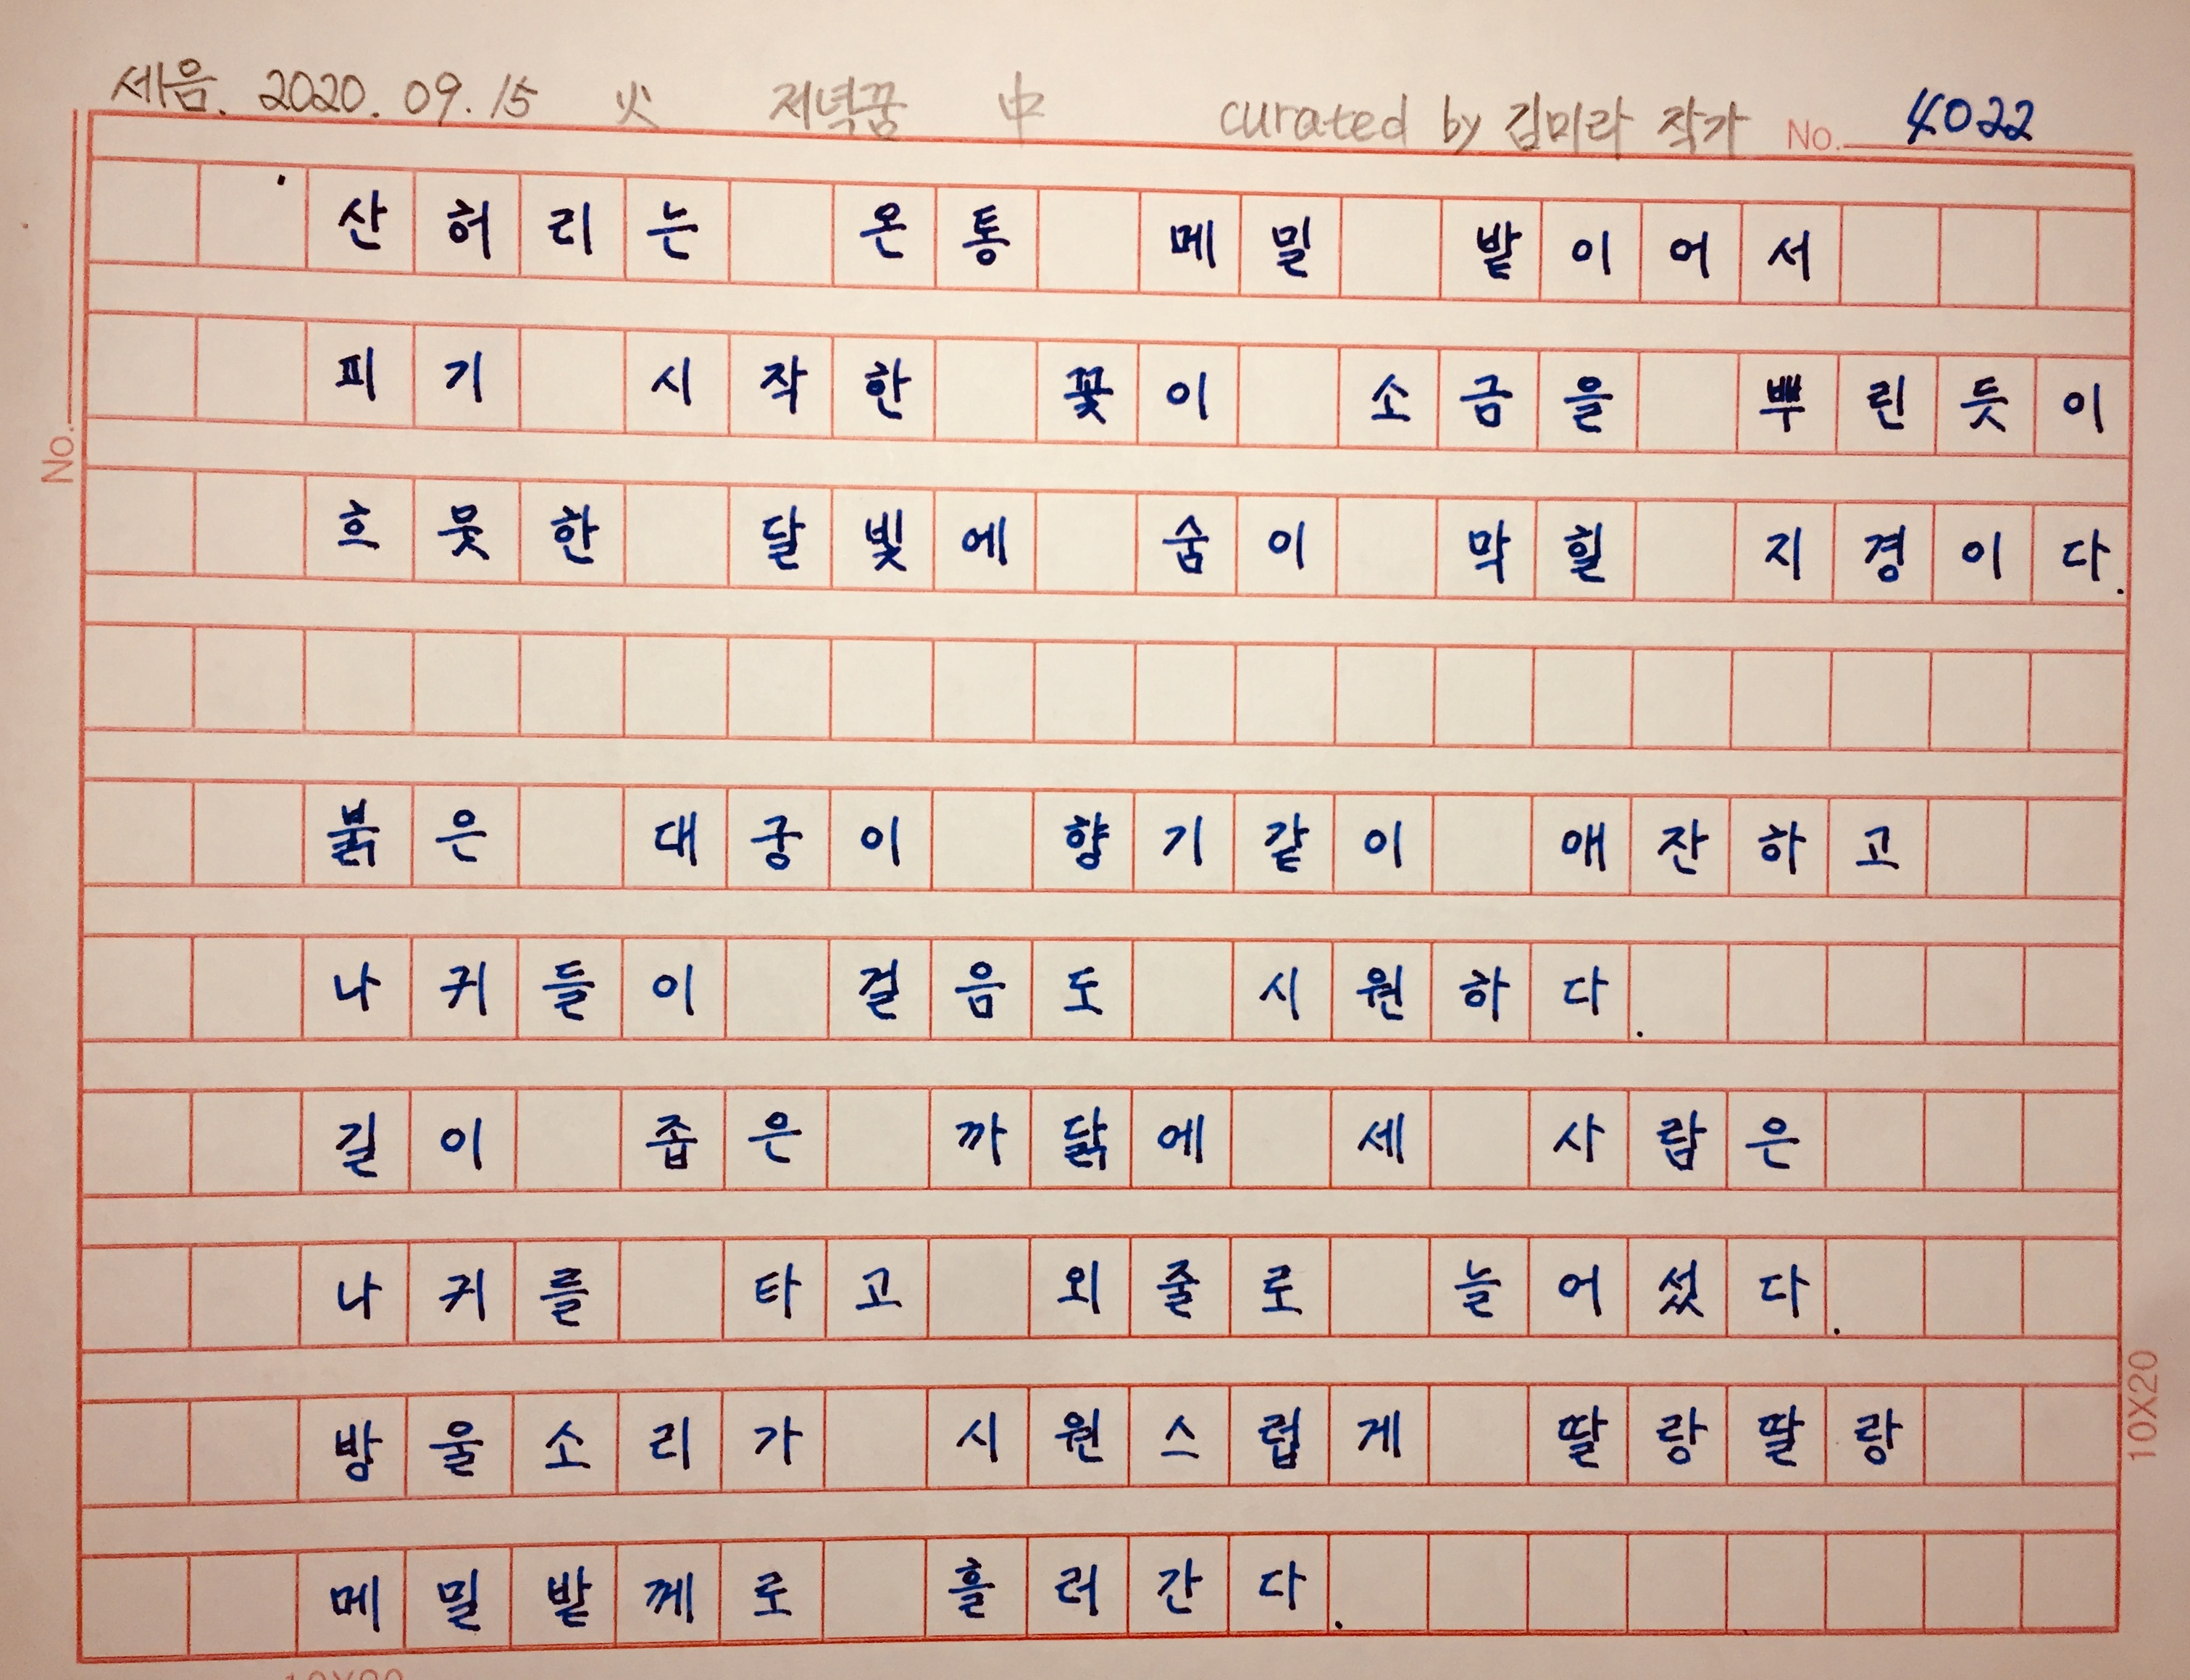 세음. 2020. 09. 15 火 저녁꿈 中 curated by 김미라 작가 No. 4022
산허리는 온통 메밀 밭이어서
피기 시작한 꽃이 소금을 뿌린듯이
흐뭇한 달빛에 숨이 막힐 지경이다.
No.
붉은 대궁이 향기같이 애잔하고
나귀들이 걸음도 시원하다.
길이 좁은 까닭에 세 사람은
나귀를 타고 외줄로 늘어섰다.
방울소리가 시원스럽게 딸랑딸랑
메밀밭께로 흘러간다.
10X20